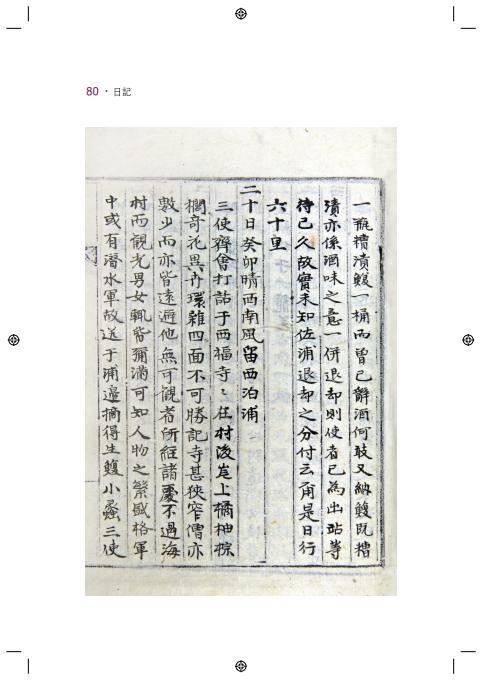 80 · 日記
一瓶糟漬鰒一桶而曾已辭酒何敢又納鰒旣糟
漬亦係酒味之意一併退却則使者已為出站等
待已久故實未知佐浦退却之分付云甬是日行
六十里
二十日癸卯晴西南風留西泊浦
三使齊會打話于西福寺寺在村後岸上橘柚棕
櫚奇花異卉環雜四面不可勝記寺甚狹窄僧亦
數少而亦皆遠避他無可觀者所経諸處不過海
村而觀光男女輒皆彌滿可知人物之繁盛格軍
中或有潛水軍故送于浦邊摘得生鰒小螺三使